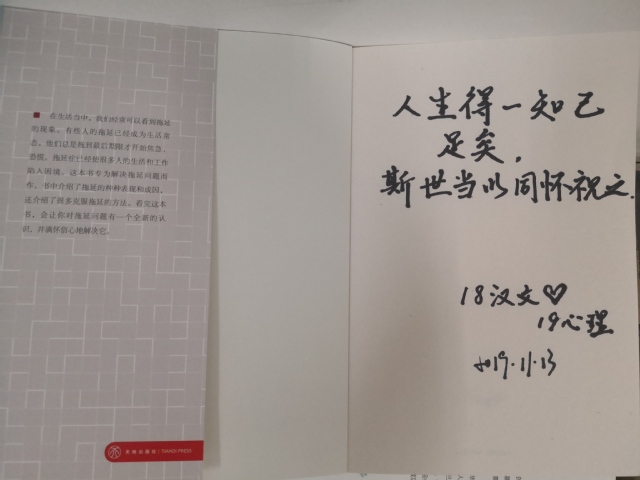 ■ 在生活当中，我们经常可以看到拖延
的现象。有些人的拖延已经成为生活常
态，他们总是拖到最后期限才开始焦急、
恐慌。拖延症已经使很多人的生活和工作
陷入困境。这本书专为解决拖延问题而
作，书中介绍了拖延的种种表现和成因，
还介绍了很多克服拖延的方法。看完这本
书，会让你对拖延问题有一个全新的认
识，并满怀信心地解决它。
天地出版社 | TIANDI PRESS
人生得一知己
足矣，
斯世当以同怀视之.
18汉文♡
19心理
2019.11.13